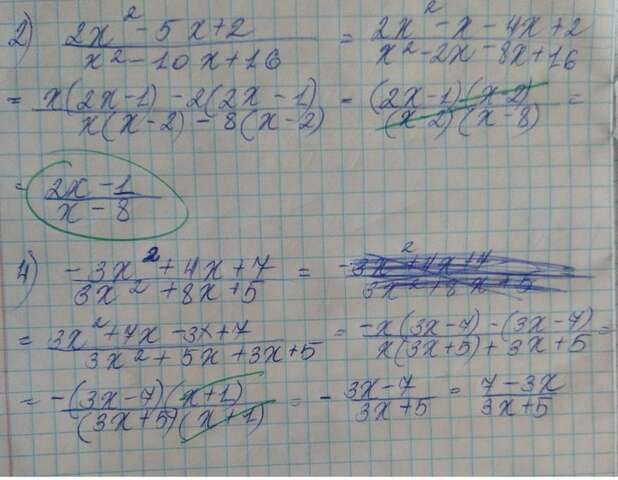 2) (2x² - 5x + 2)/(x² - 10x + 16) = (2x² - x - 4x + 2)/(x² - 2x - 8x + 16)
= (x(2x - 1) - 2(2x - 1))/(x(x - 2) - 8(x - 2)) = ((2x - 1)(x - 2))/((x - 2)(x - 8)) =
= (2x - 1)/(x - 8)
4) (-3x² + 4x + 7)/(3x² + 8x + 5) =
= (3x² + 7x - 3x + 7)/(3x² + 5x + 3x + 5) = (-x(3x - 7) - (3x - 7))/(x(3x + 5) + 3x + 5) =
= (-(3x - 7)(x + 1))/((3x + 5)(x + 1)) = - (3x - 7)/(3x + 5) = (7 - 3x)/(3x + 5)